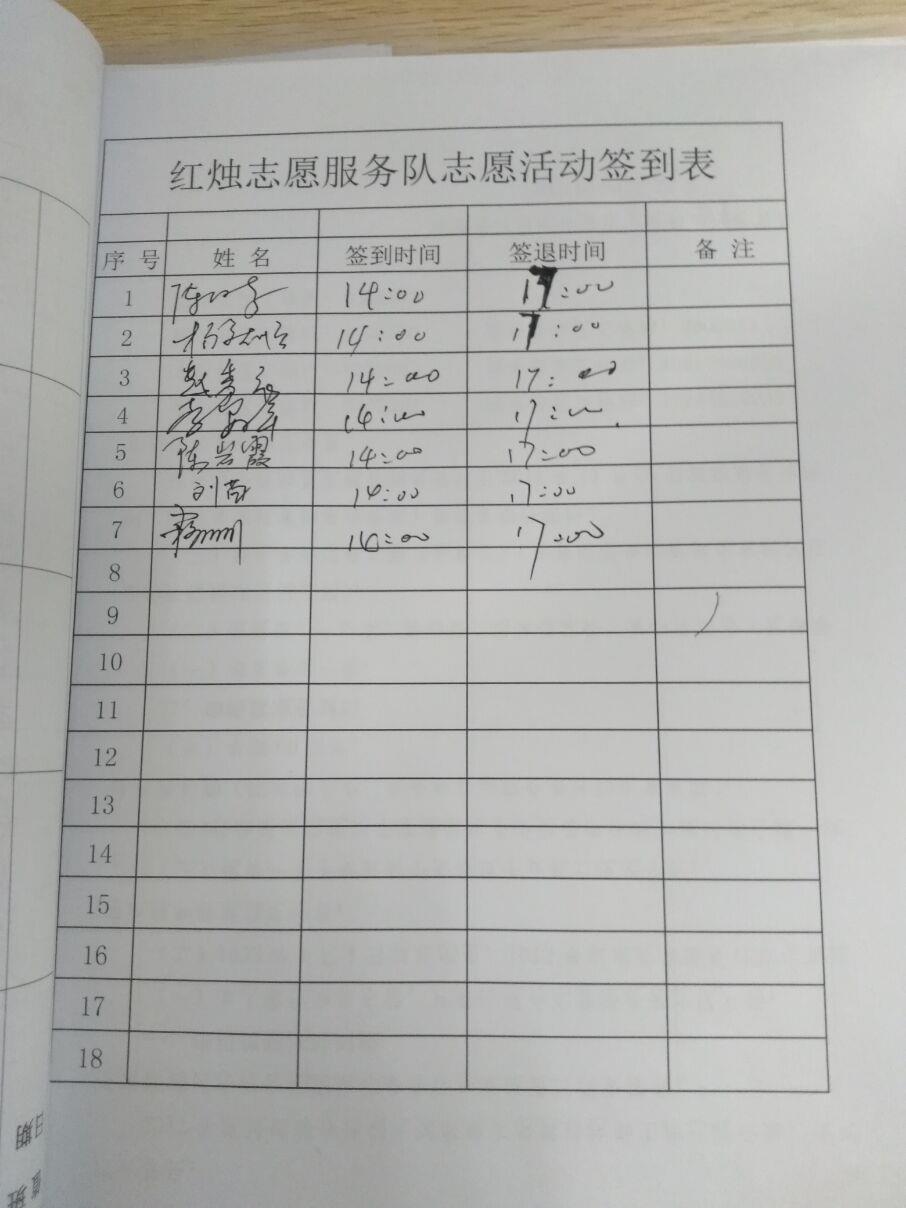 红烛志愿服务队志愿活动签到表
序 号 姓 名 签到时间 签退时间 备 注
1 14:00 17:00
2 14:00 17:00
3 14:00 17:00
4 14:00 17:00
5 陈岩霞 14:00 17:00
6 14:00 17:00
7 14:00 17:00
8
9
10
11
12
13
14
15
16
17
18
日期
值班